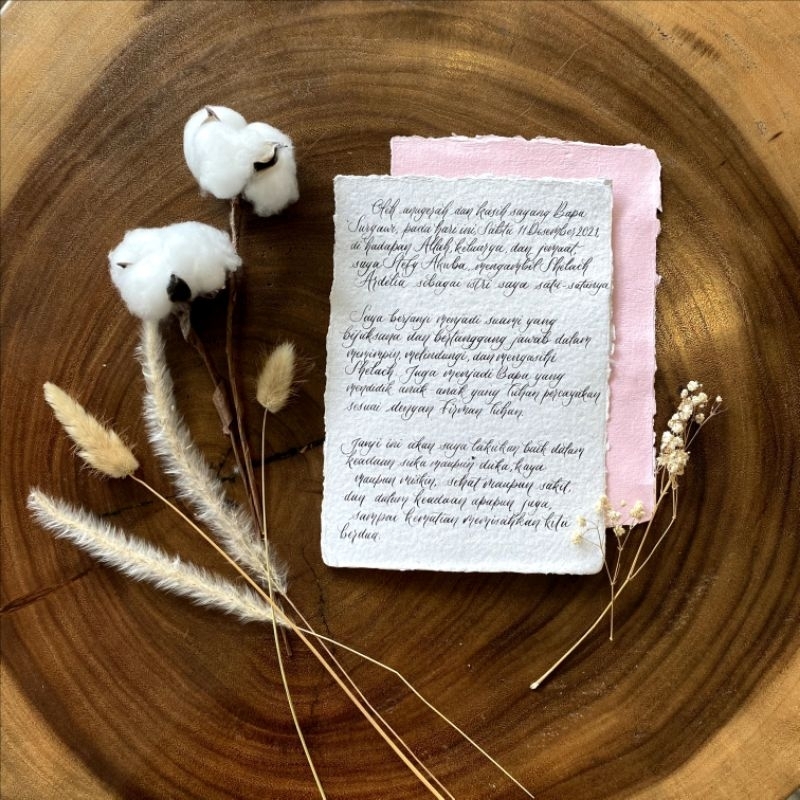 Oleh anugerah dan kasih sayang Bapa
Surgawi, pada hari ini, Sabtu 11 Desember 2021,
di hadapan Allah, keluarga, dan jemaat
saya Stefy Akuba, mengambil Shelach
Ardelia sebagai istri saya satu-satunya.
Saya berjanji menjadi suami yang
bijaksana dan bertanggung jawab dalam
memimpin, melindungi, dan mengasihi
Shelach. Juga menjadi Bapa yang
mendidik anak-anak yang Tuhan percayakan
sesuai dengan Firman Tuhan.
Janji ini akan saya lakukan baik dalam
keadaan suka maupun duka, kaya
maupun miskin, sehat maupun sakit,
dan dalam keadaan apapun juga,
sampai kematian memisahkan kita
berdua.